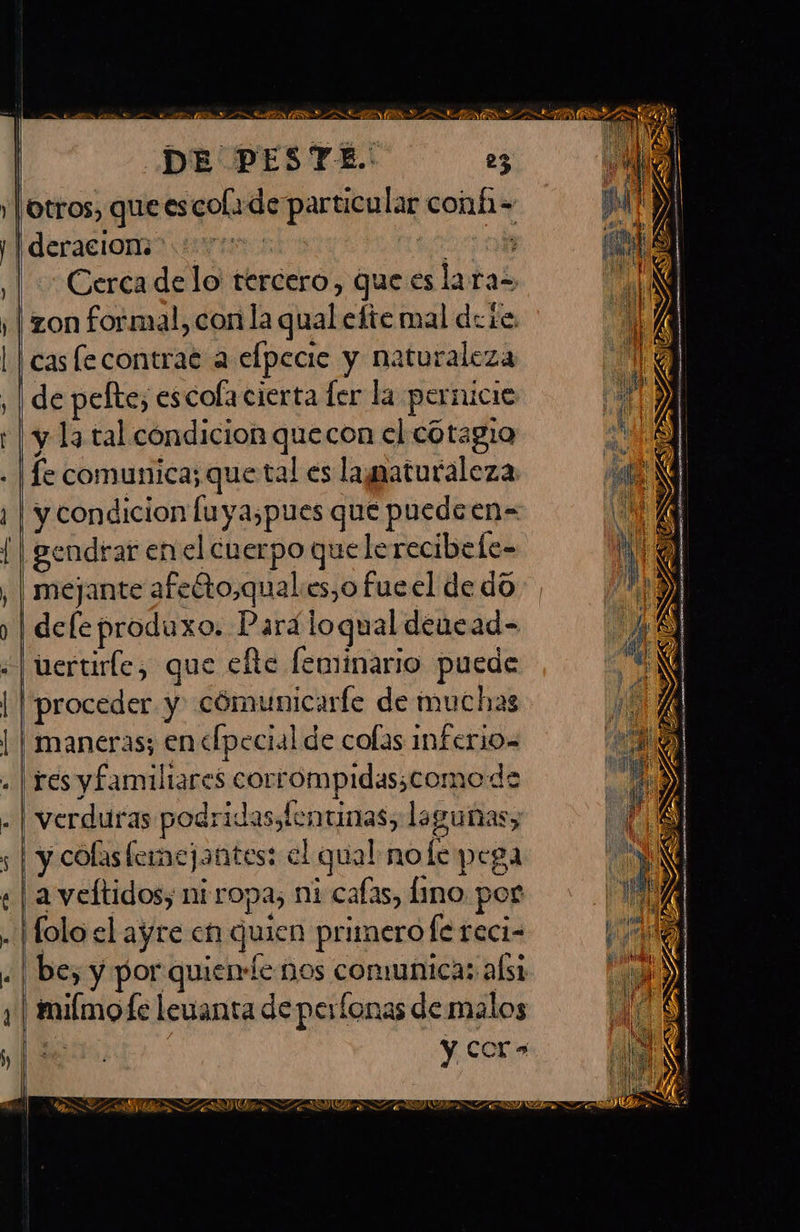 DE PESTE. 23
otros, que es coſa de particular conſi-
deracion.
Cerca de lo tercero, que es la ra-
zon formal, con la qual eſte mal deſe
cas ſe contrae a eſpecie y naturaleza
de peſte, es coſa cierta ſer la pernicie
y la tal condicion que con el cõtagio
ſe comunica; que tal es la naturaleza
y condicion ſuya, pues que puede en-
gendrar en el cuerpo que le recibe ſe-
mejante afecto, qual es, o fue el de dõ
de ſe produxo. Para lo qual deue ad-
uertirſe, que eſte ſeminario puede
proceder y comunicarſe de muchas
maneras; en eſpecial de coſas inferio-
res y familiares corrompidas; como de
verduras podridas, ſentinas, lagunas,
y coſas ſemejantes: el qual no ſe pega
a veſtidos, ni ropa, ni caſas, ſino por
ſolo el ayre en quien primero ſe reci-
be, y por quien ſe nos comunica: aſsi
miſmo ſe leuanta de perſonas de malos
y cor-